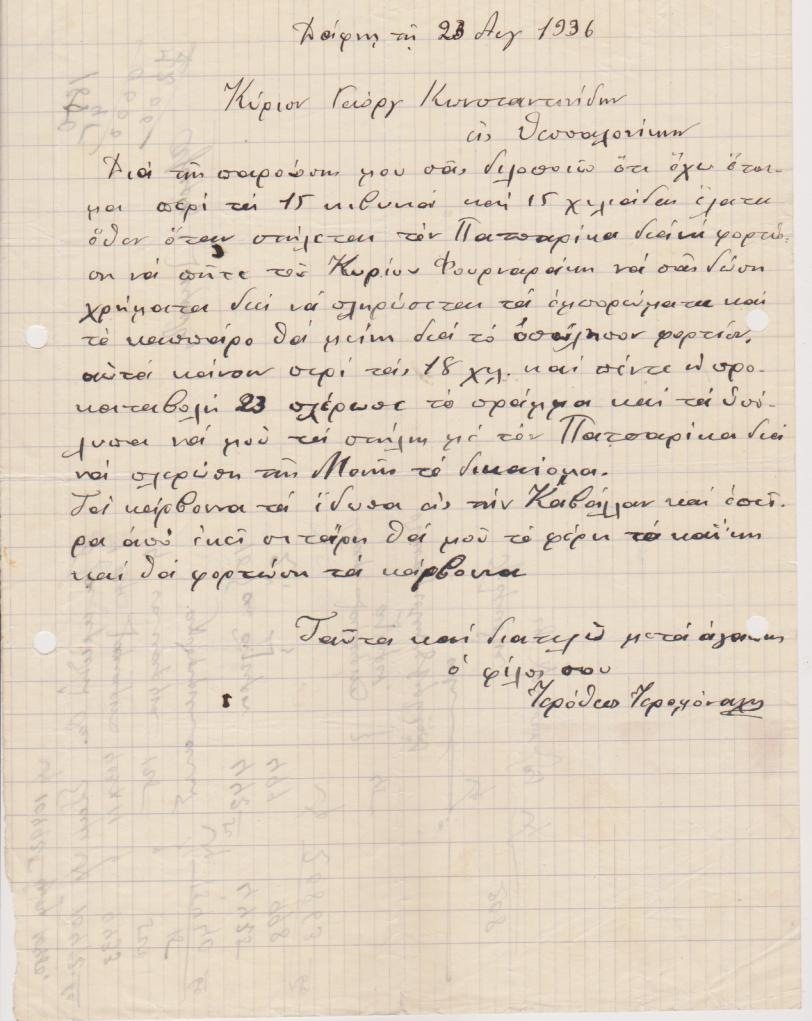 Δάφνη τῇ 23 Αυγ 1936
Κύριον Γεώργ Κωνσταντινίδην
εἰς Θεσσαλονίκην
Διά τῆς παρούσης μου σᾶς διλοποιῶ ὅτι ἔχω ἕτοι-
μα περί τά 15 κιβυκά καί 15 χιλιάδες ἔλατα
ὅθεν ὅταν στήλεται τόν Πατσαρίκα διά νά φορτώ-
ση νά πῆτε τοῦ Κυρίου Φουρναράκη νά σᾶς δώση
χρήματα διά νά πληρώσεται τά ἐμπορεύματα καί
τό καππάρο θά μείνη διά τό ὑπόληπον φορτίον.
αὐτά κάνουν περί τάς 18 χιλ. καί πέντε ἡ προ-
καταβολή 23 πλέρωσε τό πράμμα καί τά ὑπό-
λυπα νά μοῦ τά στήλη μέ τόν Πατσαρίκα διά
νά πλερώση τῆς Μονῆς τό δικαίομα.
Τά κάρβουνα τά ἔδυσα εἰς τήν Καβάλλαν καί ἐπῆ-
ρα ἀπό ἐκεῖ σιτάρη θά μοῦ τό φέρη τό καΐκη
καί θά φορτώση τά κάρβουνα
Ταῦτα καί διατελῶ μετά ἀγάπης
ὁ φίλος σου
Ἱερόθεος Ἱερομόναχος